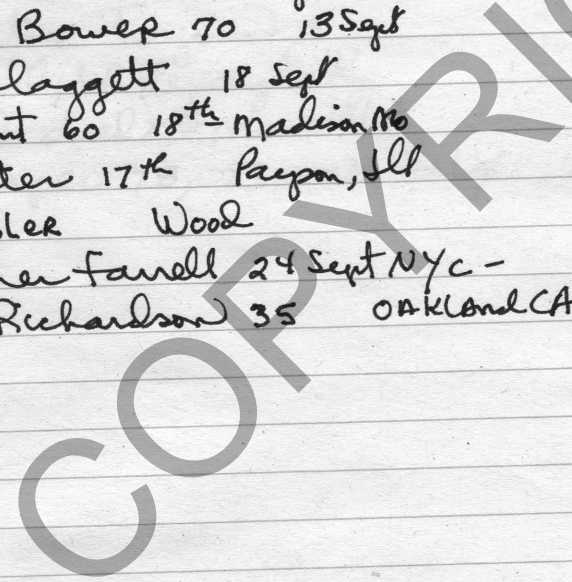 Bower 70 13 Sept
laggett 18 Sept
nt 60 18th Madison Mo
ter 17th Payson, Ill
ler Wood
er Farrell 24 Sept NYC -
Richardson 35 OAKLAnd CA
COPYRI